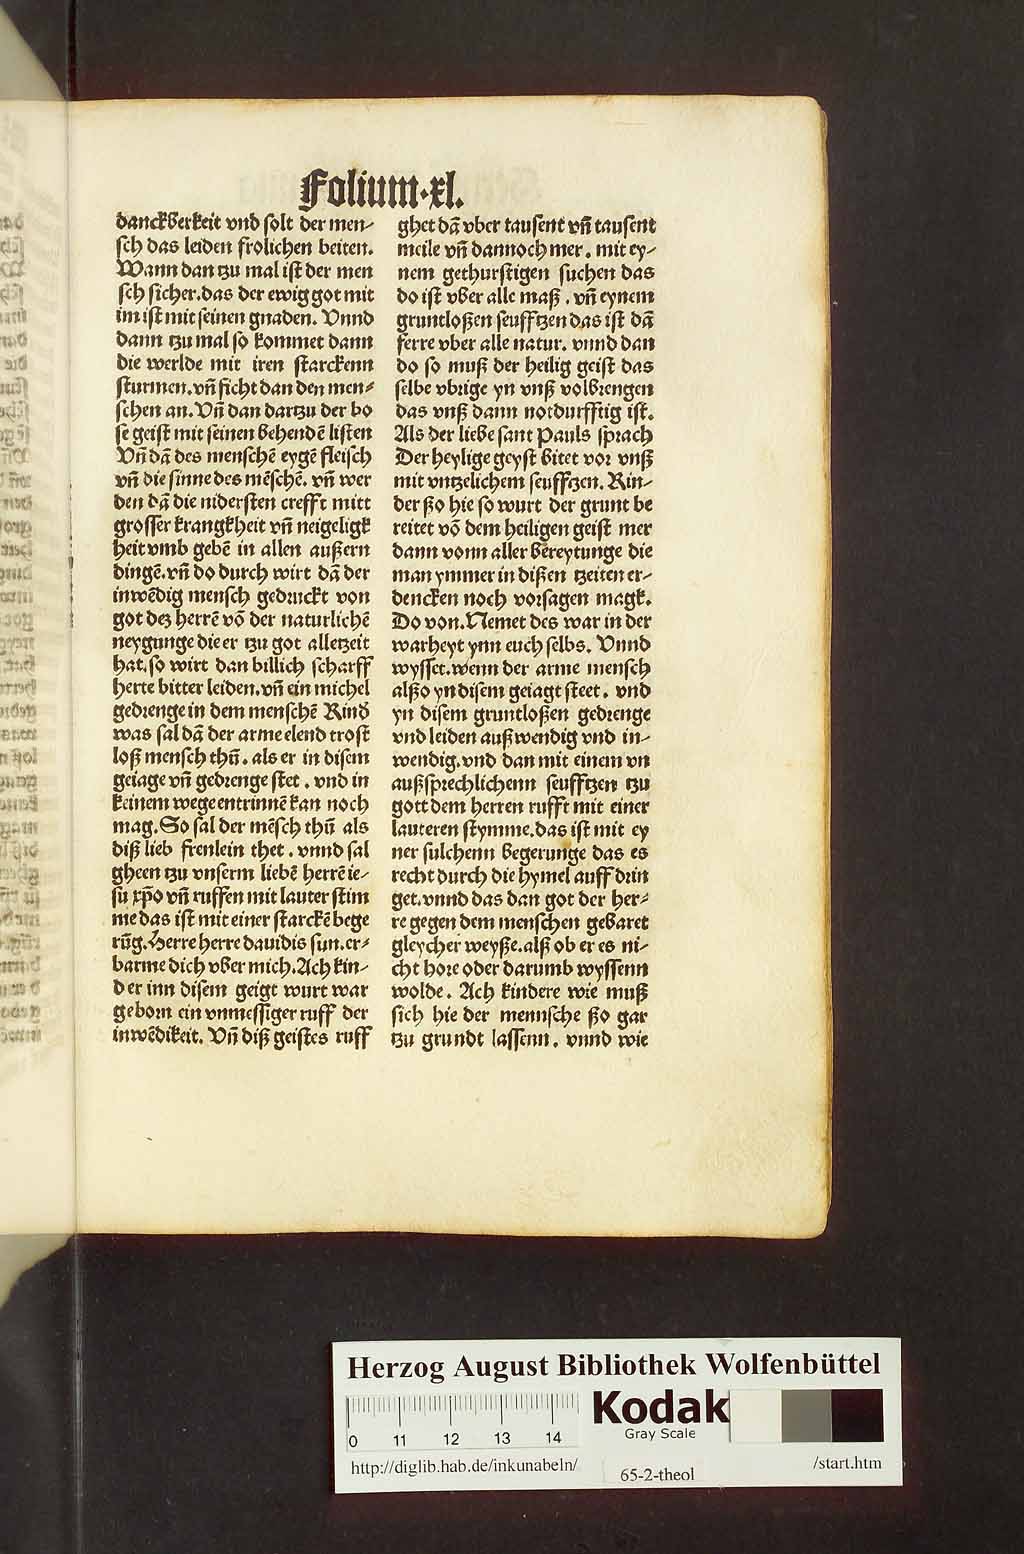 Folium·xl.
danckberkeit vnd solt der men-
sch das leiden frolichen beiten.
Wann dan tzu mal ist der men
sch sicher. das der ewig got mit
im ist mit seinen gnaden. Vnnd
dann tzu mal so kommet dann
die werlde mit iren starckenn
sturmen. vñ ficht dan den men-
schen an. Vñ dan dartzu der bo
se geist mit seinen behendē listen
Vñ dā des menschē eygē fleisch
vñ die sinne des mēschē. vñ wer
den dā die nidersten crefft mitt
grosser krangkheit vñ neigeligk
heit vmb gebē in allen außern
dingē. vñ do durch wirt dā der
inwēdig mensch gedruckt von
got dez herrē vō der naturlichē
neygunge die er tzu got alletzeit
hat. so wirt dan billich scharff
herte bitter leiden. vñ ein michel
gedrenge in dem menschē Rind̄
was sal dā der arme elend trost
loß mensch thū. als er in disem
geiage vñ gedrenge stet. vnd in
keinem wege entrinnē kan noch
mag. So sal der mēsch thū als
diß lieb frenlein thet. vnnd sal
gheen tzu vnserm liebē herrē ie-
su xp̄o vñ ruffen mit lauter stim
me das ist mit einer starckē bege
rūg. Herre herre dauidis sun. er-
barme dich vber mich. Ach kin-
der inn disem geigt wurt war
geborn ein vnmessiger ruff der
inwēdikeit. Vñ diß geistes ruff
ghet dā vber tausent vñ tausent
meile vñ dannoch mer. mit ey-
nem gethurstigen suchen das
do ist vber alle maß. vñ eynem
gruntloßen seufftzen das ist dā
ferre vber alle natur. vnnd dan
do so muß der heilig geist das
selbe vbrige yn vnß volbrengen
das vnß dann notdurfftig ist.
Als der liebe sant Pauls sprach
Der heylige geyst bitet vor vnß
mit vntzelichem seufftzen. Rin-
der ßo hie so wurt der grunt be
reitet vō dem heiligen geist mer
dann vonn aller bereytunge die
man ymmer in dißen tzeiten er-
dencken noch vorsagen magk.
Do von. Nemet des war in der
warheyt ynn euch selbs. Vnnd
wysset. wenn der arme mensch
alßo yn disem geiagt steet. vnd
yn disem gruntloßen gedrenge
vnd leiden außwendig vnd in-
wendig. vnd dan mit einem vn
außsprechlichenn seufftzen tzu
gott dem herren rufft mit einer
lauteren stymme. das ist mit ey
ner sulchenn begerunge das es
recht durch die hymel auff drin
get. vnnd das dan got der her-
re gegen dem menschen gebaret
gleycher weyße. alß ob er es ni-
cht hore oder darumb wyssenn
wolde. Ach kindere wie muß
sich hie der mennsche ßo gar
tzu grundt lassenn. vnnd wie
Herzog August Bibliothek Wolfenbüttel
0 11 12 13 14
Kodak
Gray Scale
http://diglib.hab.de/inkunabeln/
65-2-theol
/start.htm